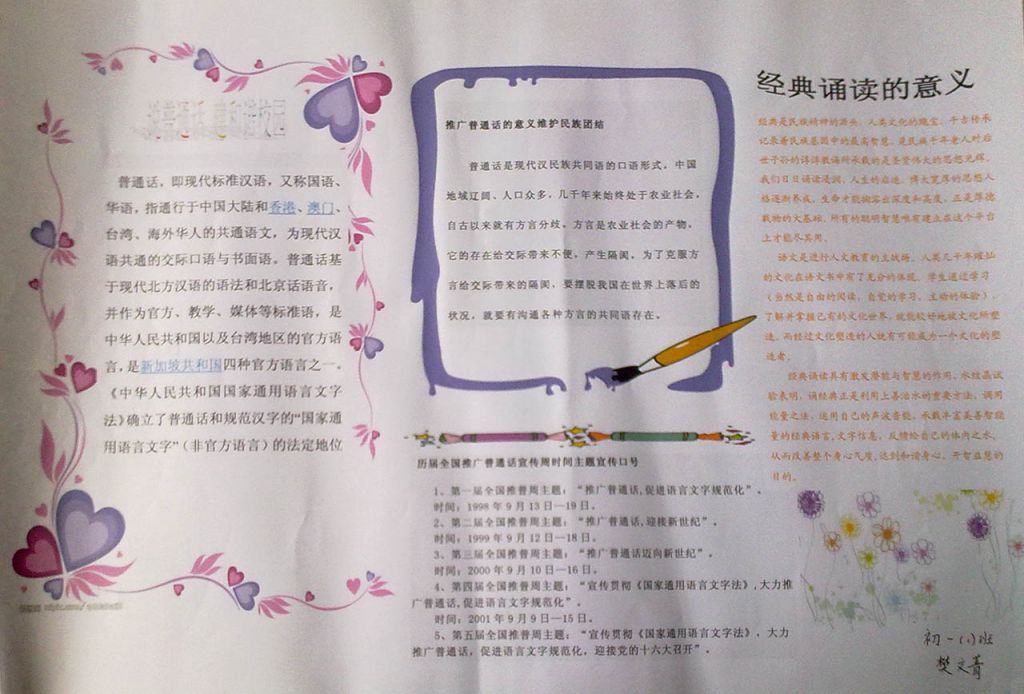 说普通话 建和谐校园
普通话，即现代标准汉语，又称国语、
华语，指通行于中国大陆和香港、澳门、
台湾、海外华人的共通语文，为现代汉
语共通的交际口语与书面语。普通话基
于现代北方汉语的语法和北京话语音，
并作为官方、教学、媒体等标准语，是
中华人民共和国以及台湾地区的官方语
言，是新加坡共和国四种官方语言之一。
《中华人民共和国国家通用语言文字
法》确立了普通话和规范汉字的“国家通
用语言文字”（非官方语言）的法定地位
推广普通话的意义维护民族团结
普通话是现代汉民族共同语的口语形式。中国
地域辽阔、人口众多，几千年来始终处于农业社会，
自古以来就有方言分歧。方言是农业社会的产物。
它的存在给交际带来不便，产生隔阂。为了克服方
言给交际带来的隔阂，要摆脱我国在世界上落后的
状况，就要有沟通各种方言的共同语存在。
历届全国推广普通话宣传周时间主题宣传口号
1、第一届全国推普周主题：“推广普通话,促进语言文字规范化”。
时间：1998 年 9 月 13 日—19 日。
2、第二届全国推普周主题：“推广普通话,迎接新世纪”。
时间：1999 年 9 月 12 日—18 日。
3、第三届全国推普周主题：“推广普通话迈向新世纪”。
时间：2000 年 9 月 10 日—16 日。
4、第四届全国推普周主题：“宣传贯彻《国家通用语言文字法》,大力推
广普通话,促进语言文字规范化”。
时间：2001 年 9 月 9 日—15 日。
5、第五届全国推普周主题：“宣传贯彻《国家通用语言文字法》，大力
推广普通话，促进语言文字规范化，迎接党的十六大召开”。
经典诵读的意义
经典是民族精神的源头、人类文化的瑰宝。千古传承
记录着民族基因中的最高智慧。是民族千年老人对后
世子孙的谆谆教诲所承载的是圣贤伟大的思想光辉。
我们日日诵读浸润，人生的启迪、博大宽厚的思想人
格逐渐养成。生命才能掘溶出深度和高度。正是厚德
载物的大基础。所有的聪明智慧唯有建立在这个平台
上才能尽其用。
语文是进行人文教育的主战场。人类几千年璀灿
的文化在语文书中有了充分的体现。学生通过学习
（当然是自由的阅读、自觉的学习、主动的体验），
了解并掌握已有的文化世界，就能较好地被文化所塑
造。而经过文化塑造的人就有可能成为一个文化的塑
造者。
经典诵读具有激发潜能与智慧的作用。水结晶试
验表明，诵经典正是利用上善治水的重要方法，调用
能量之法，运用自己的声波音能，承载丰富美善智能
量的经典语言,文字信息，反馈给自己的体内之水，
从而改善整个身心气质,达到和谐身心、开智益慧的
目的。
初一(1)班
樊文菁